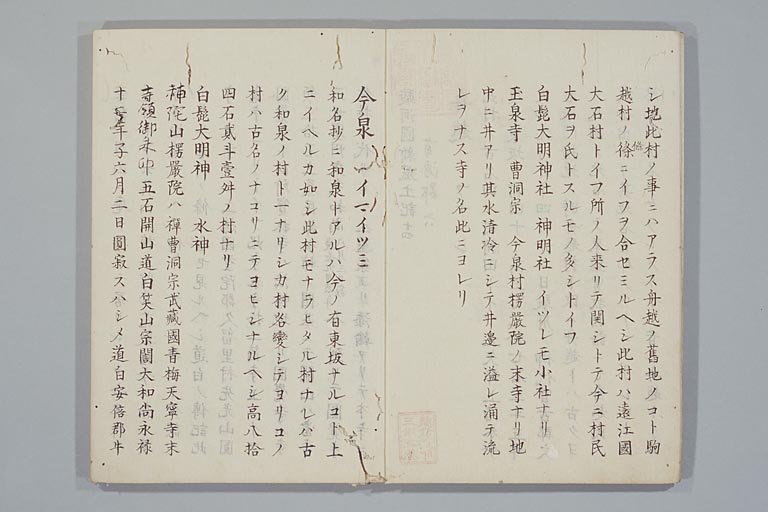 シ地此村ノ事ニハアラス舟越ノ舊地ノコト駒
越村ノ條ニイフヲ合セミルヘシ此村ハ遠江國
大石村トイフ所ノ人來リテ関シトテ今ニ村民
大石ヲ氏トスルモノ多シトイフ
白髭大明神社 神明社 イツレモ小社ナリ
玉泉寺 曹洞宗 今泉村楞嚴院ノ末寺ナリ地
中ニ井アリ其水清冷ニシテ井邊ニ溢レ涌テ流
レヲナス寺ノ名此ニヨレリ
今泉 イマイツミ
和名抄ニ和泉トアルハ今ノ有東坂ナルコト上
ニイヘルカ如シ此村モナラヒタル村ナレハ古
ク和泉ノ村ト一ナリシカ村名變シテヨリコノ
村ハ古名ノナコリニテヨヒシナルヘシ高八拾
四石貳斗壹舛ノ村ナリ
白髭大明神 水神
神陀山楞嚴院ハ禪曹洞宗武藏國青梅天寧寺末
寺領御朱印五石開山道白笑山宗誾大和尚永禄
十年子六月二日圓寂スハシメ道白安倍郡牛